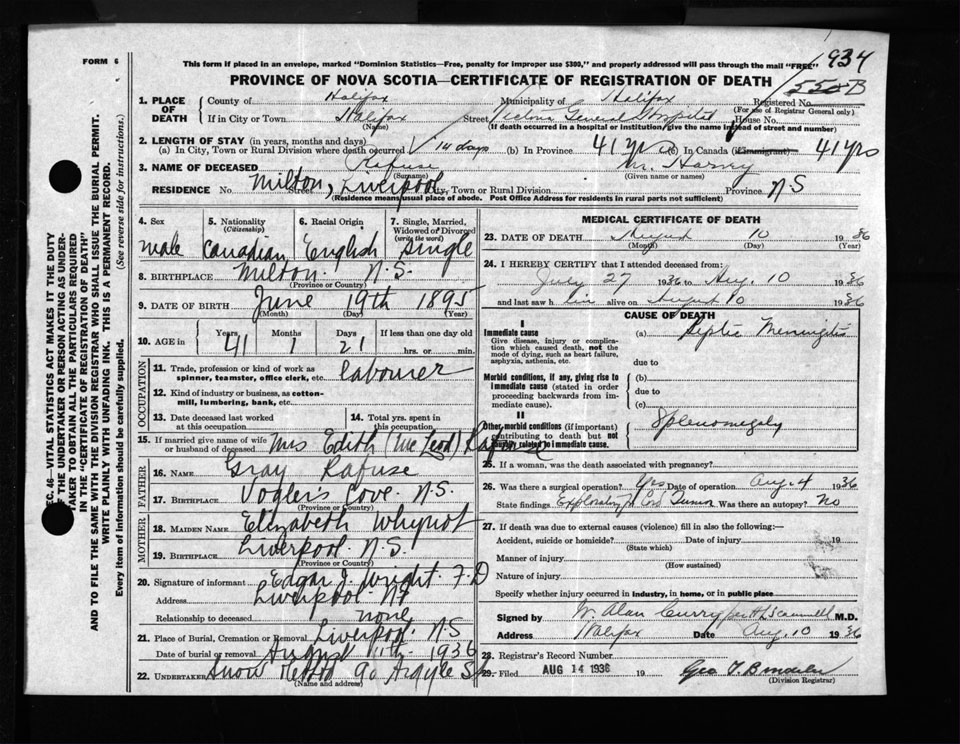 FORM 6
This form if placed in an envelope, marked "Dominion Statistics—Free, penalty for improper use $300," and properly addressed will pass through the mail "FREE"
934
PROVINCE OF NOVA SCOTIA—CERTIFICATE OF REGISTRATION OF DEATH
550-B
1. PLACE OF DEATH County of Halifax Municipality of Halifax Registered No. (For use of Registrar General only)
If in City or Town Halifax (Name) Street Victoria General Hospital House No.
(If death occurred in a hospital or institution, give the name instead of street and number)
2. LENGTH OF STAY (in years, months and days)
(a) In City, Town or Rural Division where death occurred 14 days (b) In Province 41 yrs (c) In Canada (if immigrant) 41 yrs
3. NAME OF DECEASED Rafuse (Surname) Harry (Given name or names)
RESIDENCE No. Street Milton, Liverpool City, Town or Rural Division Province N S
(Residence means usual place of abode. Post Office Address for residents in rural parts not sufficient)
4. Sex male
5. Nationality (Citizenship) Canadian
6. Racial Origin English
7. Single, Married, Widowed or Divorced (write the word) Single
8. BIRTHPLACE Milton. N.S.
(Province or Country)
9. DATE OF BIRTH June 19th 1895
(Month) (Day) (Year)
10. AGE in Years 41 Months 1 Days 21 If less than one day old hrs. or min.
OCCUPATION
11. Trade, profession or kind of work as spinner, teamster, office clerk, etc. labourer
12. Kind of industry or business, as cotton-mill, lumbering, bank, etc.
13. Date deceased last worked at this occupation
14. Total yrs. spent in this occupation
15. If married give name of wife or husband of deceased Mrs Edith Rafuse
FATHER
16. NAME Gray Rafuse
17. BIRTHPLACE Vogler's Cove. N.S.
(Province or Country)
MOTHER
18. MAIDEN NAME Elizabeth Whynot
19. BIRTHPLACE Liverpool. N.S.
(Province or Country)
20. Signature of informant Edgar J. Wright. F.D
Address Liverpool
Relationship to deceased none
21. Place of Burial, Cremation or Removal Liverpool. N S
Date of burial or removal August 11th. 1936
22. UNDERTAKER Snow 90 Argyle St
(Name and address)
MEDICAL CERTIFICATE OF DEATH
23. DATE OF DEATH August 10 1936
(Month) (Day) (Year)
24. I HEREBY CERTIFY that I attended deceased from:
July 27 1936 to Aug. 10 1936
and last saw him alive on August 10 1936
CAUSE OF DEATH
I
Immediate cause
Give disease, injury or complication which caused death, not the mode of dying, such as heart failure, asphyxia, asthenia, etc.
(a) Septic Meningitis
due to
Morbid conditions, if any, giving rise to immediate cause (stated in order proceeding backwards from immediate cause).
(b)
due to
(c)
II
Other morbid conditions (if important) contributing to death but not causally related to immediate cause.
Splenomegaly
25. If a woman, was the death associated with pregnancy?
26. Was there a surgical operation? Yes Date of operation Aug. 4 1936
State findings Exploratory for Cord Tumor Was there an autopsy? No
27. If death was due to external causes (violence) fill in also the following:—
Accident, suicide or homicide? Date of injury 19
(State which)
Manner of injury
(How sustained)
Nature of injury
Specify whether injury occurred in industry, in home, or in public place
Signed by W. Alan Curry M.D.
Address Halifax Date Aug. 10 1936
28. Registrar's Record Number
29. Filed AUG 14 1936 19 Geo
(Division Registrar)
SEC. 46—VITAL STATISTICS ACT MAKES IT THE DUTY
OF THE UNDERTAKER OR PERSON ACTING AS UNDER-
TAKER TO OBTAIN ALL THE PARTICULARS REQUIRED
IN THE "CERTIFICATE OF REGISTRATION OF DEATH"
AND TO FILE THE SAME WITH THE DIVISION REGISTRAR WHO SHALL ISSUE THE BURIAL PERMIT.
WRITE PLAINLY WITH UNFADING INK. THIS IS A PERMANENT RECORD.
Every item of Information should be carefully supplied. (See reverse side for instructions.)